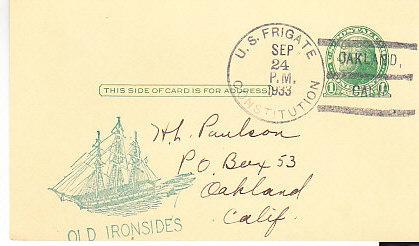 U.S. FRIGATE
CONSTITUTION
SEP
24
P.M.
1933
OAKLAND,
CALIF.
THIS SIDE OF CARD IS FOR ADDRESS
H.L. Paulson
P.O. Box 53
Oakland
Calif.
OLD IRONSIDES